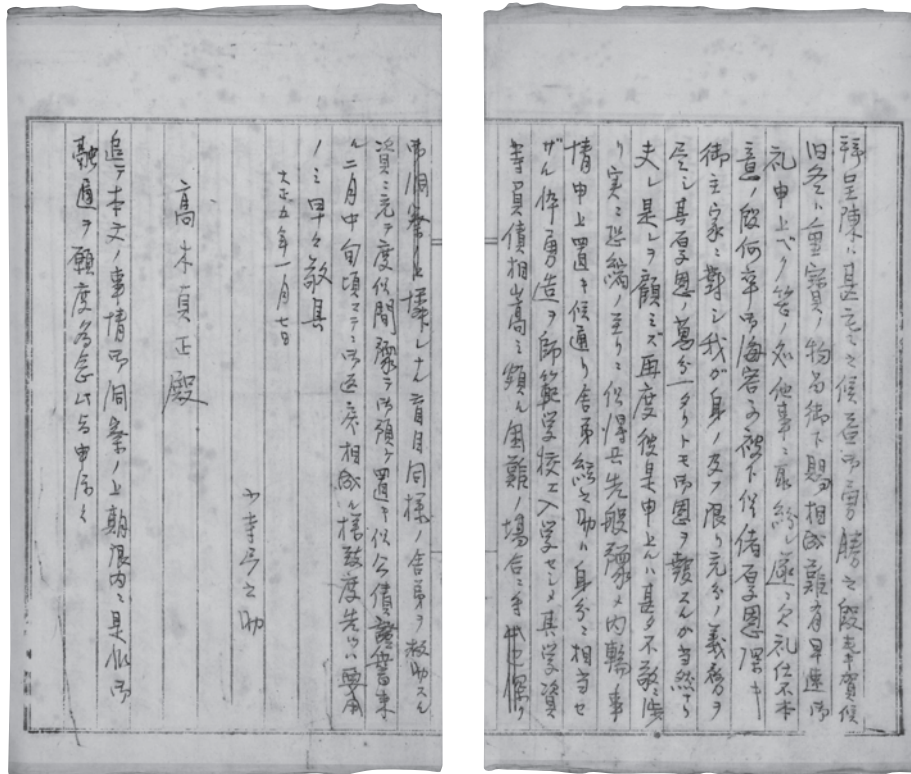 拝呈陳ハ甚寒之候益御勇勝之段奉賀候
旧冬ハ重宝ノ物品御下賜相成難有早速御
礼申上ベク筈ノ処他事ニ取紛レ遂ニ欠礼仕不本
意ノ段何卒御海容可被下候偖厚恩深キ
御主家ニ対シ我ガ身ノ及フ限リ充分ノ義務ヲ
尽シ其厚恩ノ萬分一タリトモ御恩ヲ報スルガ当然ラ
夫レ是レヲ顧ミズ再度彼是申上ルハ甚タ不敬ニ渉
リ実ニ恐縮ノ至リニ候得共先般縷々内輪事
情申上置キ候通リ舎弟経之助ハ自分ニ相当セ
ザル倅勇造ヲ師範学校エ入学セシメ其学資
等負債相嵩ミ頗ル困難ノ場合ニ至
御洞察ノ上
資ニ充テ度候間予テ御預ケ置キ候公債証書来
ル二月中旬頃マテニ御返戻相成ル様致度先ツハ要用
ノミ早々敬具
大正五年一月七日
小寺弓之助
高木貞正殿
追テ本文ノ事情御洞察ノ上期限内ニ是非御
融通ヲ願度為念此与申居候